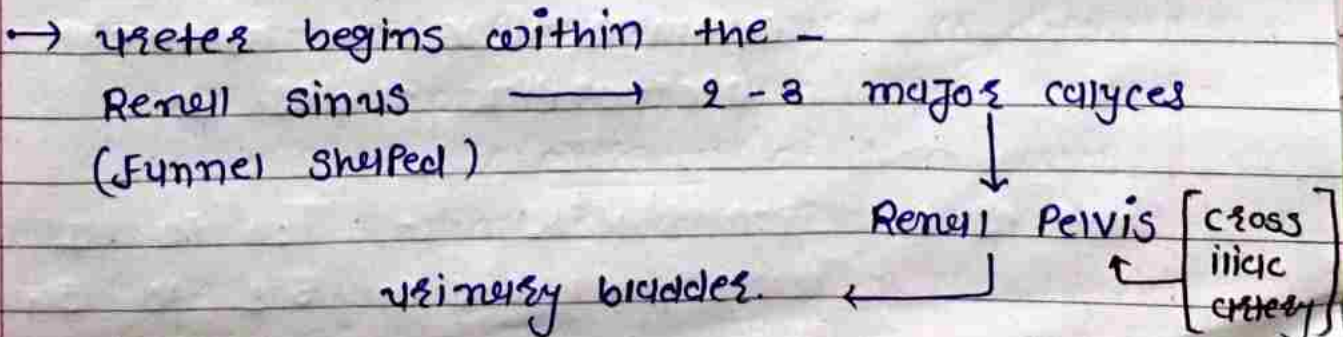 → ureter begins within the -
Renal sinus → 2 - 3 major calyces
(Funnel shaped)
↓
Renal Pelvis [cross
iliac
artery]
urinary bladder. ←